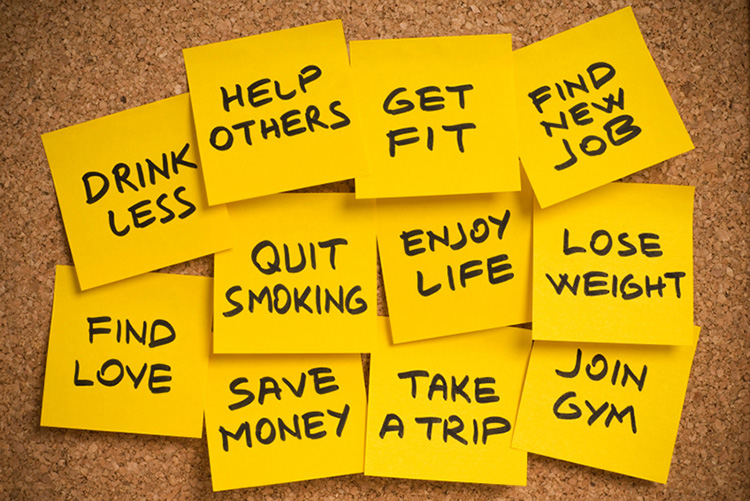 HELP
OTHERS
GET
FIT
FIND
NEW
JOB
DRINK
LESS
QUIT
SMOKING
ENJOY
LIFE
LOSE
WEIGHT
FIND
LOVE
SAVE
MONEY
TAKE
A TRIP
JOIN
GYM